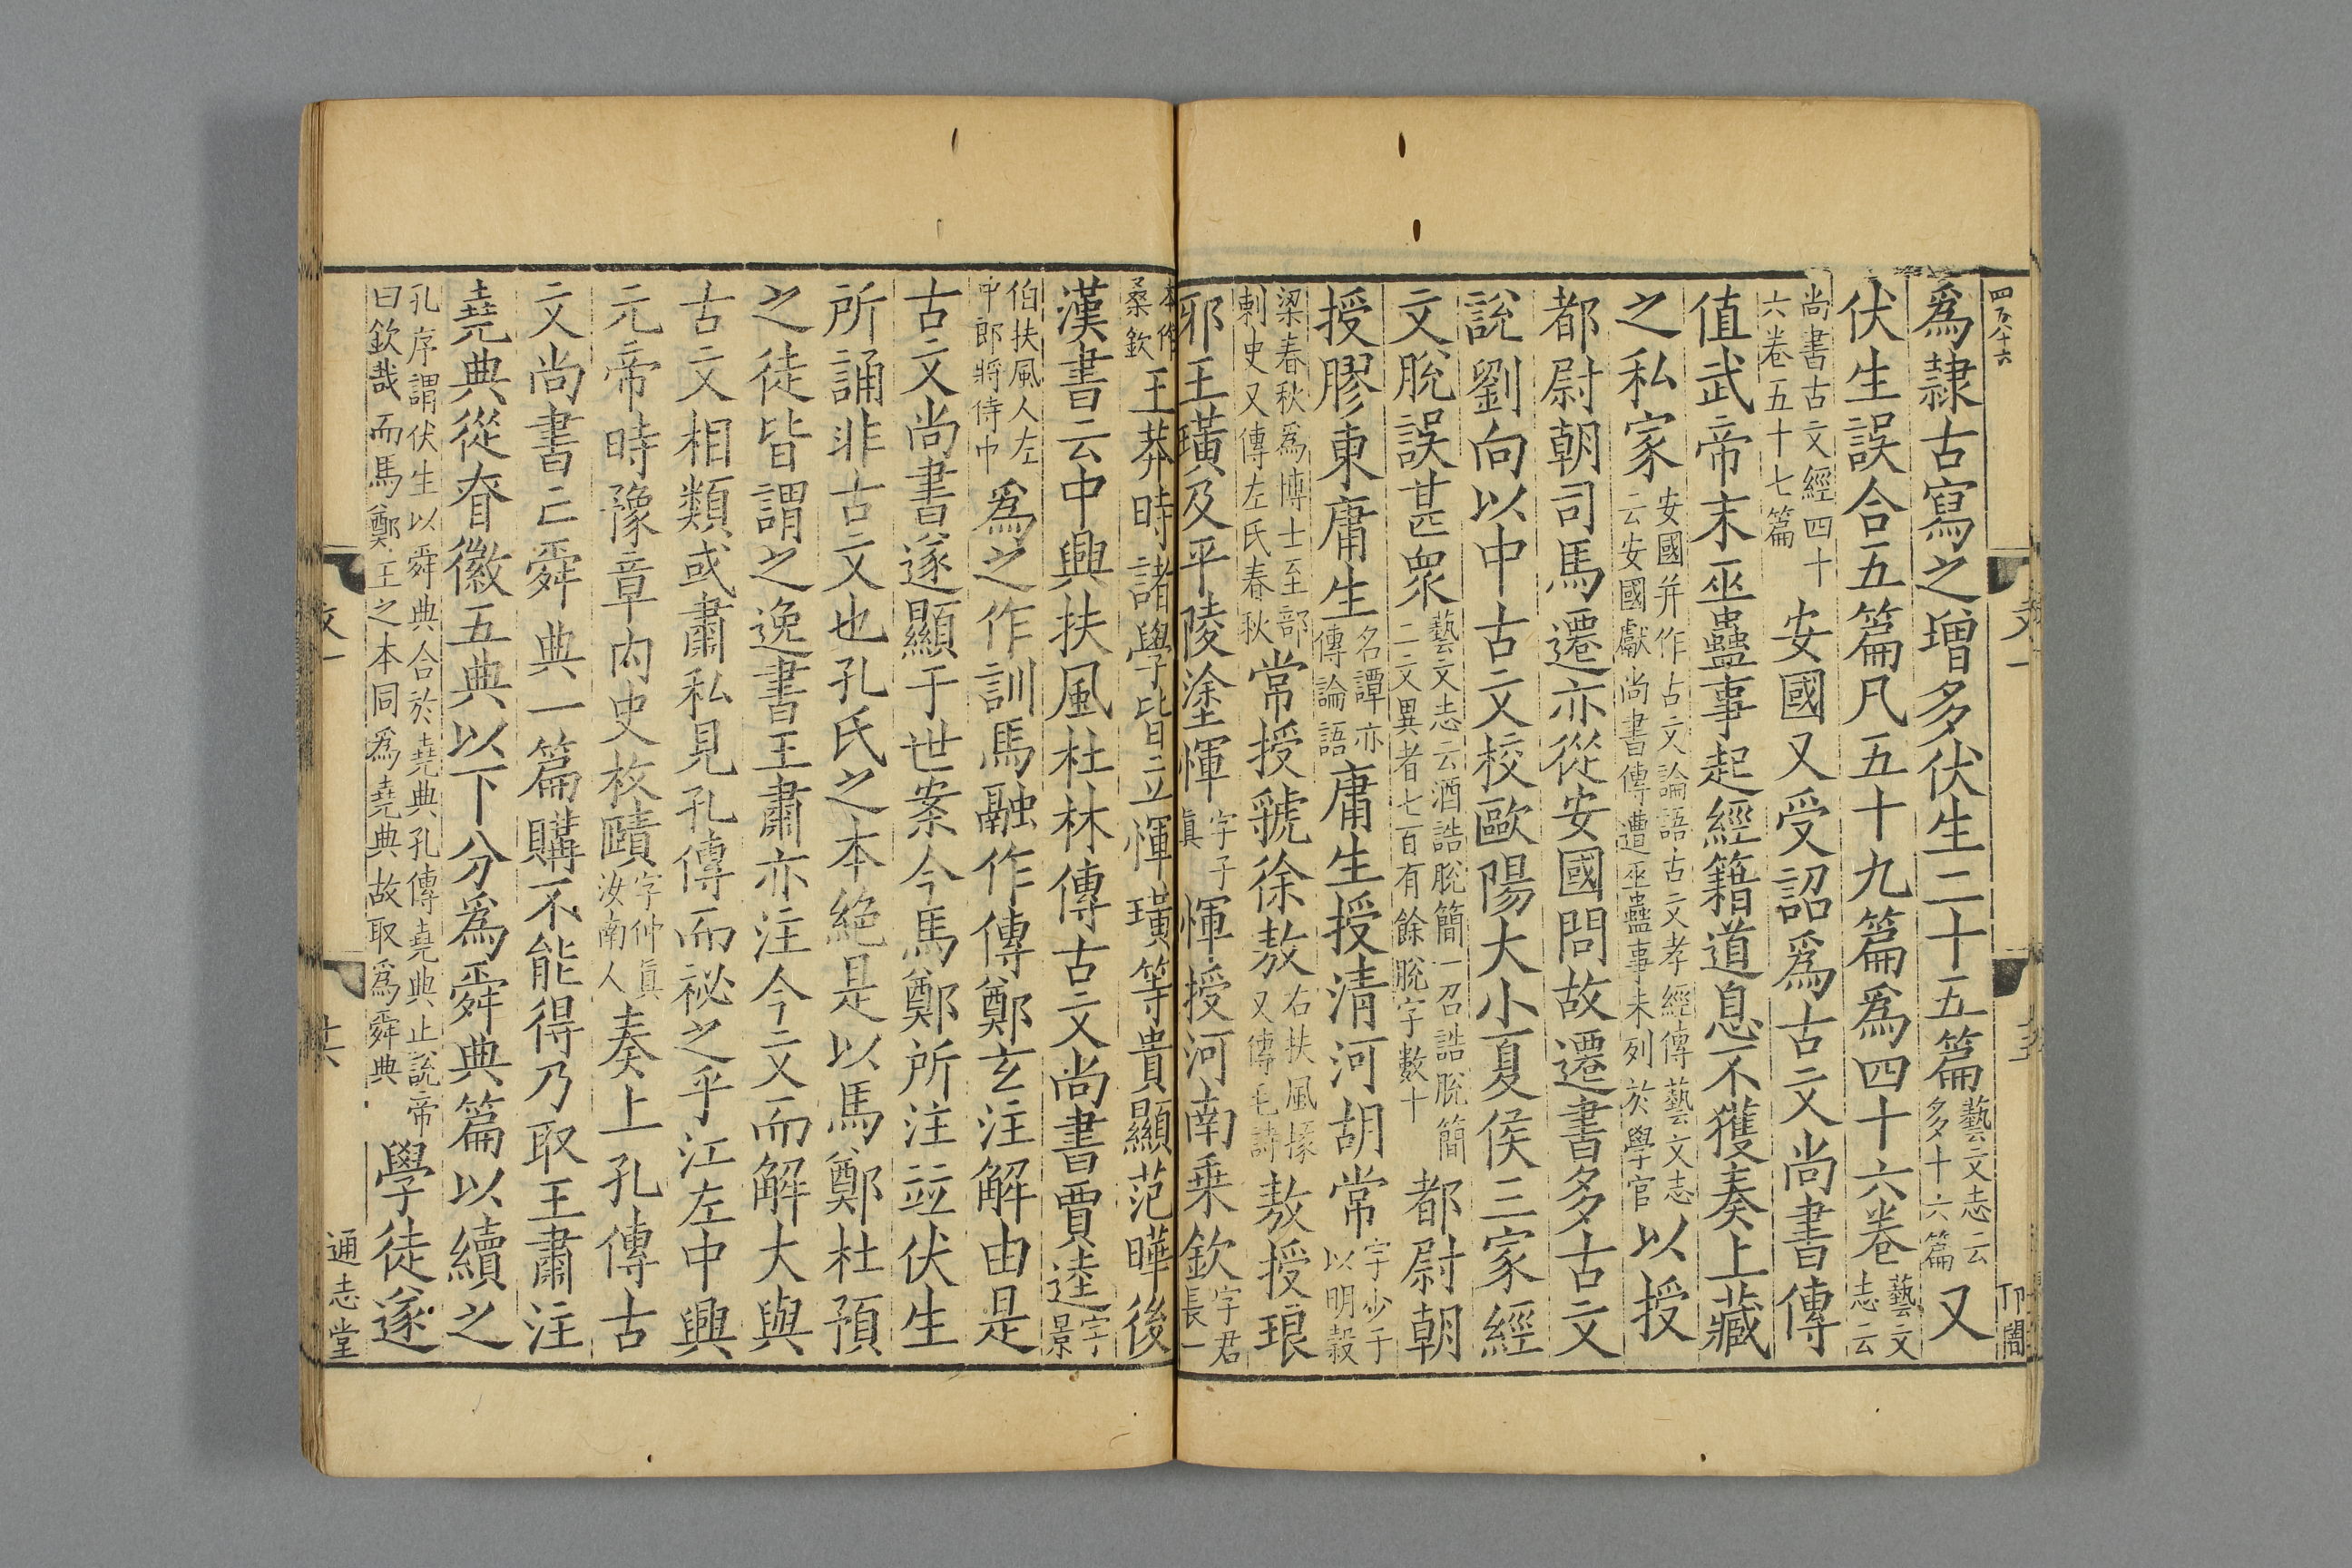 四百八十六
爲隷古寫之增多伏生二十五篇藝文志云多十六篇又
伏生誤合五篇凡五十九篇爲四十六卷藝文志云
尚書古文經四十六卷五十七篇安國又受詔爲古文尚書傳
值武帝末巫蠱事起經籍道息不獲奏上藏
之私家安國并作古文論語古文孝經傳藝文志云安國獻尚書傳遭巫蠱事未列於學官以授
都尉朝司馬遷亦從安國問故遷書多古文
說劉向以中古文校歐陽大小夏侯三家經
文脫誤甚眾藝文志云酒誥脫簡一召誥脫簡二文異者七百有餘脫字數十都尉朝
授膠東庸生名譚亦傳論語庸生授清河胡常字少子以明穀
梁春秋爲博士至部刺史又傳左氏春秋常授虢徐敖右扶風掾又傳毛詩敖授琅
邪王璜及平陵塗惲字子眞惲授河南乗欽字君長一
本作桑欽王莽時諸學皆立惲璜等貴顯范曄後
漢書云中興扶風杜林傳古文尚書賈逵字景
伯扶風人左中郎將侍中爲之作訓馬融作傳鄭玄注解由是
古文尚書遂顯于世案今馬鄭所注竝伏生
所誦非古文也孔氏之本絕是以馬鄭杜預
之徒皆謂之逸書王肅亦注今文而解大與
古文相類或肅私見孔傳而祕之乎江左中興
元帝時豫章內史枚賾字仲眞汝南人奏上孔傳古
文尚書亡舜典一篇購不能得乃取王肅注
堯典從昚徽五典以下分爲舜典篇以續之
孔序謂伏生以舜典合於堯典孔傳堯典止說帝曰欽哉而馬鄭王之本同爲堯典故取爲舜典學徒遂
通志堂